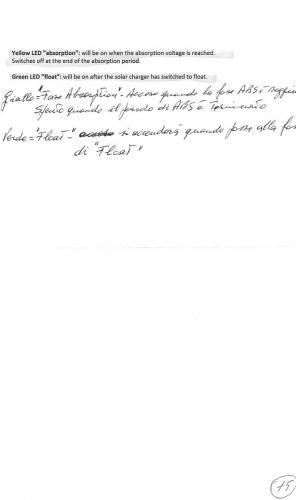 Yellow LED "absorption": will be on when the absorption voltage is reached.
Switches off at the end of the absorption period.
Green LED "float": will be on after the solar charger has switched to float.
Giallo = "Fase Absorption" - Acceso quando la fase ABS è
Spento quando il periodo di ABS è Terminato
Verde = "Float" - si accenderà quando passa alla
di "Float"
15